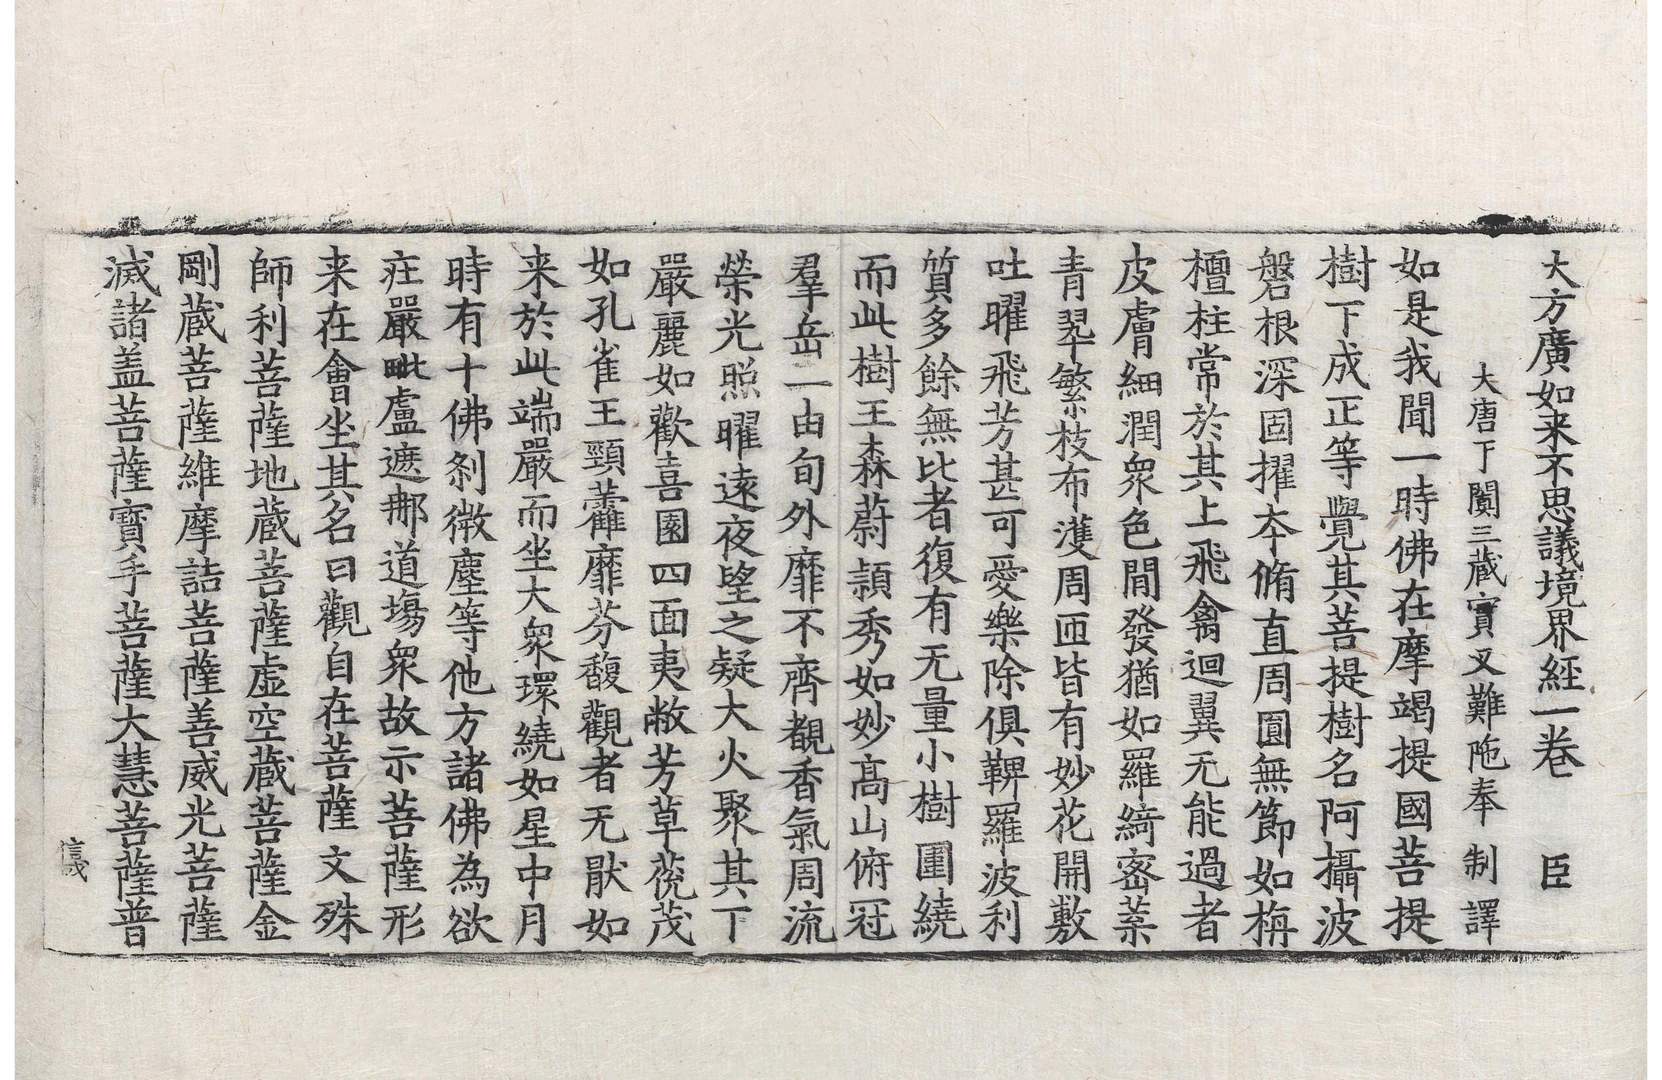 大方廣如来不思議境界經一卷 臣
大唐于闐三藏實叉難陁奉 制譯
如是我聞一時佛在摩竭提國菩提
樹下成正等覺其菩提樹名阿攝波
槃根深固擢夲脩直周圓無節如栴
檀柱常於其上飛禽迴翼无能過者
皮膚細潤衆色間發猶如羅綺宻葉
青翠繁枝布濩周匝皆有妙花開敷
吐曜飛芳甚可愛樂除俱鞞羅波利
質多餘無比者復有无量小樹圍繞
而此樹王森蔚頴秀如妙髙山俯冠
羣岳一由旬外靡不齊覩香氣周流
榮光照曜逺夜望之疑大火聚其下
嚴麗如歡喜園四面夷敞芳草蓊茂
如孔雀王頸藿靡芬馥觀者无猒如
来於此端嚴而坐大衆環繞如星中月
時有十佛刹微塵等他方諸佛為欲
荘嚴毗盧遮那道塲衆故示菩薩形
来在會坐其名曰觀自在菩薩文殊
師利菩薩地蔵菩薩虛空蔵菩薩金
剛蔵菩薩維摩詰菩薩善威光菩薩
滅諸盖菩薩寳手菩薩大慧菩薩普